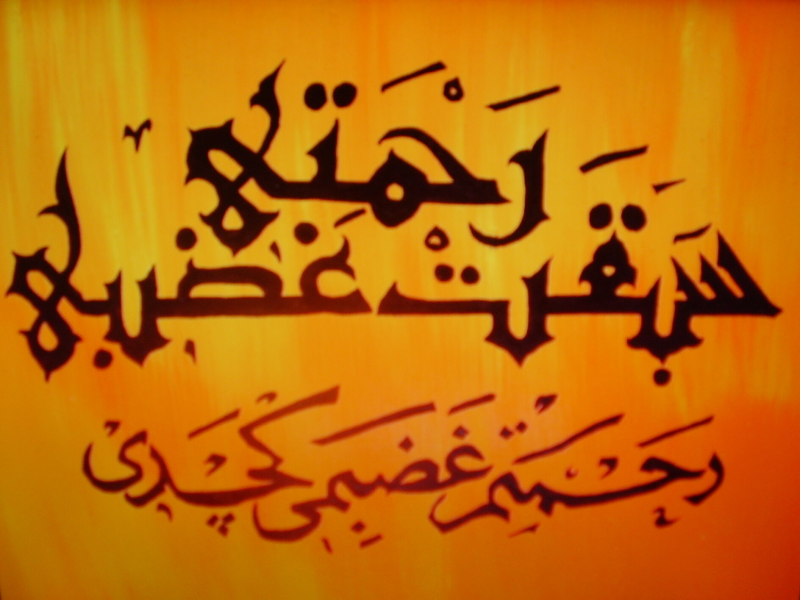 رَحْمَتِي
سَبَقَتْ غَضَبِي
رحمتم غضبمى كچدى